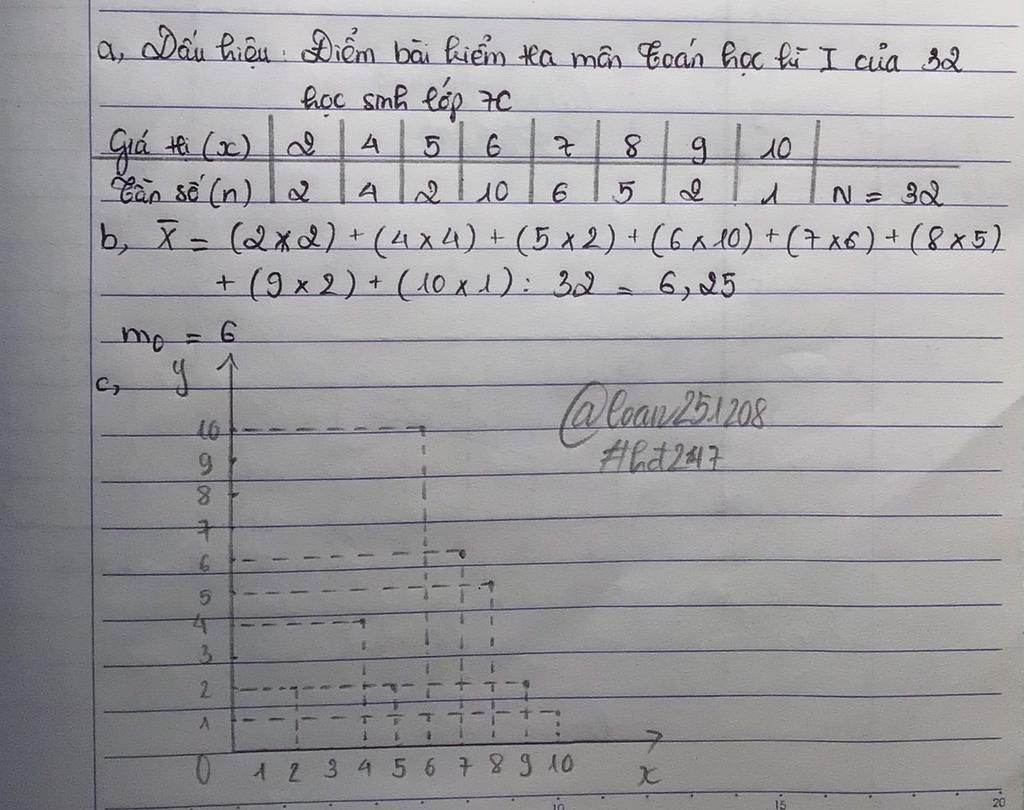 a, Dấu hiệu: Điểm bài kiểm tra môn Toán học kì I của 32
học sinh lớp 7C
Giá trị (x) | 2 | 4 | 5 | 6 | 7 | 8 | 9 | 10 |
Tần số (n) | 2 | 4 | 2 | 10 | 6 | 5 | 2 | 1 | N = 32
b, X̄ = (2×2) + (4×4) + (5×2) + (6×10) + (7×6) + (8×5)
+ (9×2) + (10×1) : 32 = 6,25
m₀ = 6
c, y
@loan251208
#hd247
10
9
8
7
6
5
4
3
2
1
0 1 2 3 4 5 6 7 8 9 10 x
10 15 20